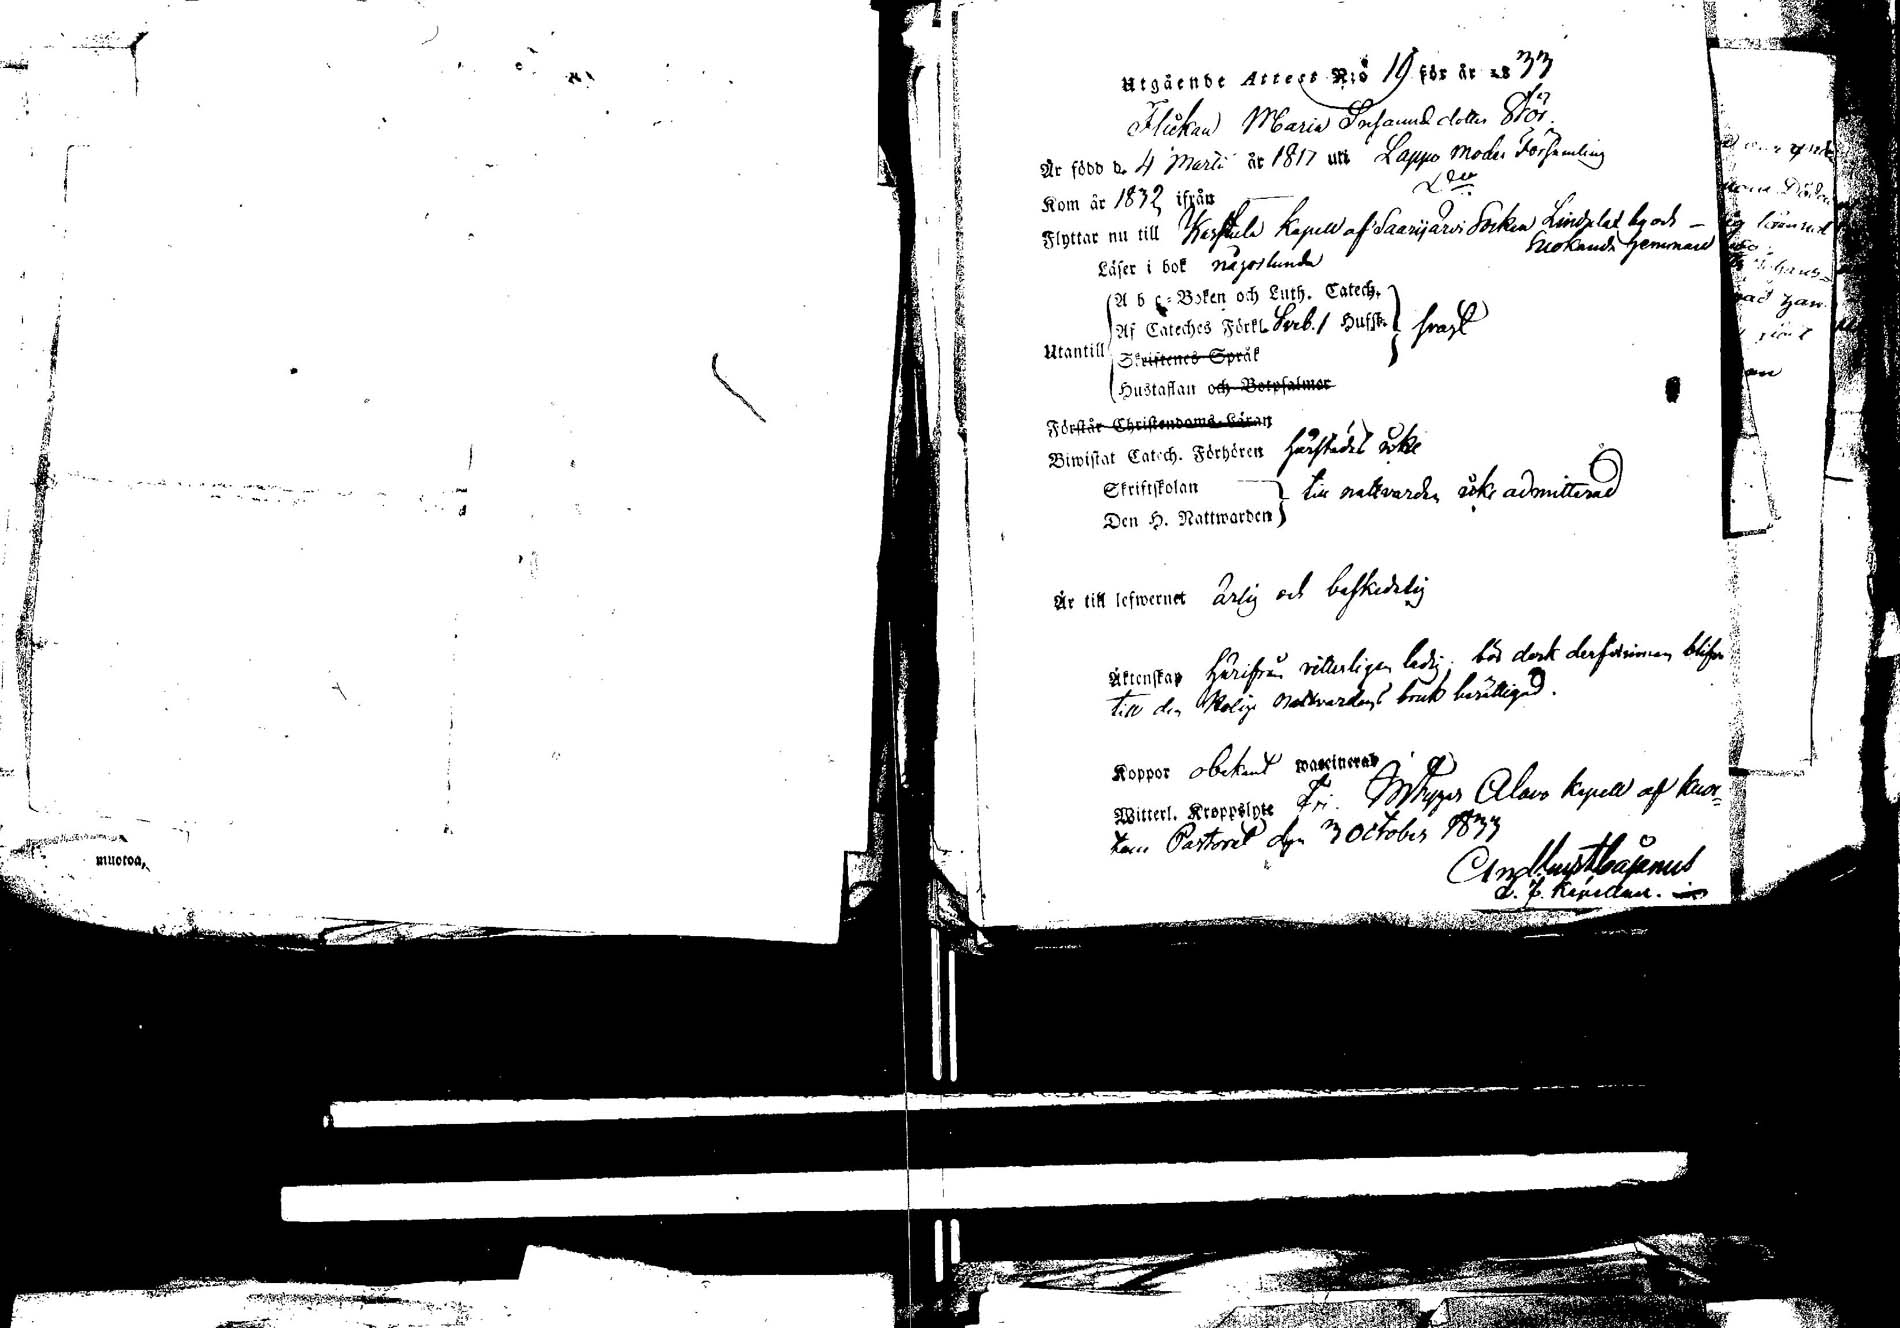 muotoa,
Utgående Attest N:o 19 för år 1833
Flickan Maria Susannadotter Stör.
Är född d. 4 Martii år 1817 uti Lappo Moder Församling
Kom år 1832 ifrån D:o
Flyttar nu till Karstula Kapell af Saarijärvi Socken Lindulax by och
hemman
Läser i bok någorlunda
A b c-Boken och Luth. Catech.
Af Cateches Förkl. Sveb. / Hussb. svagt
Utantill
Skriftenes Språk
Hustaflan och Botpsalmer
Förstår Christendoms-Läran
Biwistat Catech. Förhören härstädes icke
Skriftskolan
till nattvarden icke admitterad
Den H. Nattwarden
Är till lefwernet ärlig och beskedelig
Äktenskap härifrån vitterligen ledig, bör dock derförinnan blifva
till den Helige Nattvardens bruk berättigad.
Koppor obekant waccinerad
Witterl. Kroppslyte Fri. Alavo Kapell af Kuor-
tane Pastorat den 3 October 1833